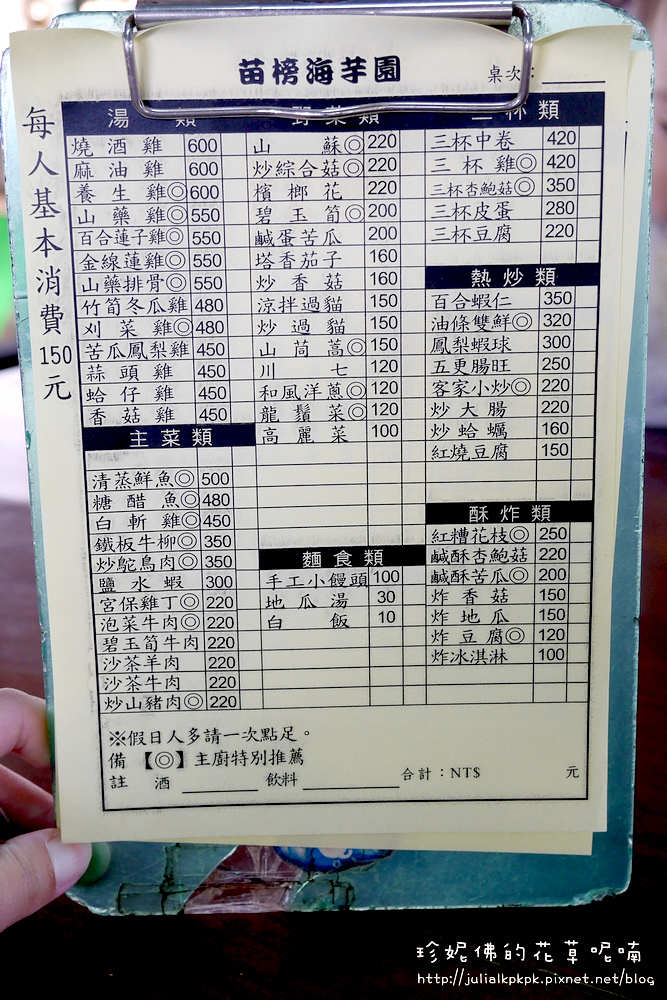 苗榜海芋園
桌次：
每人基本消費150元
湯 類
燒酒雞 600
麻油雞 600
養生雞◎ 600
山藥雞◎ 550
百合蓮子雞◎ 550
金線蓮雞◎ 550
山藥排骨◎ 550
竹筍冬瓜雞 480
刈菜雞◎ 480
苦瓜鳳梨雞 450
蒜頭雞 450
蛤仔雞 450
香菇雞 450
主菜類
清蒸鮮魚◎ 500
糖醋魚◎ 480
白斬雞◎ 450
鐵板牛柳◎ 350
炒鴕鳥肉◎ 350
鹽水蝦 300
宮保雞丁◎ 220
泡菜牛肉◎ 220
碧玉筍牛肉 220
沙茶羊肉 220
沙茶牛肉 220
炒山豬肉◎ 220
野菜類
山蘇◎ 220
炒綜合菇◎ 220
檳榔花 220
碧玉筍◎ 200
鹹蛋苦瓜 200
塔香茄子 160
炒香菇 160
涼拌過貓 150
炒過貓 150
山茼蒿◎ 150
川七 120
和風洋蔥◎ 120
龍鬚菜◎ 120
高麗菜 100
麵食類
手工小饅頭 100
地瓜湯 30
白飯 10
三杯類
三杯中卷 420
三杯雞◎ 420
三杯杏鮑菇◎ 350
三杯皮蛋 280
三杯豆腐 220
熱炒類
百合蝦仁 350
油條雙鮮◎ 320
鳳梨蝦球 300
五更腸旺 250
客家小炒◎ 220
炒大腸 220
炒蛤蠣 160
紅燒豆腐 150
酥炸類
紅糟花枝◎ 250
鹹酥杏鮑菇 220
鹹酥苦瓜◎ 200
炸香菇 150
炸地瓜 150
炸豆腐◎ 120
炸冰淇淋 100
※假日人多請一次點足。
備【◎】主廚特別推薦
註 酒 飲料 合計：NT$ 元
珍妮佛的花草呢喃
http://julialkpkpk.pixnet.net/blog